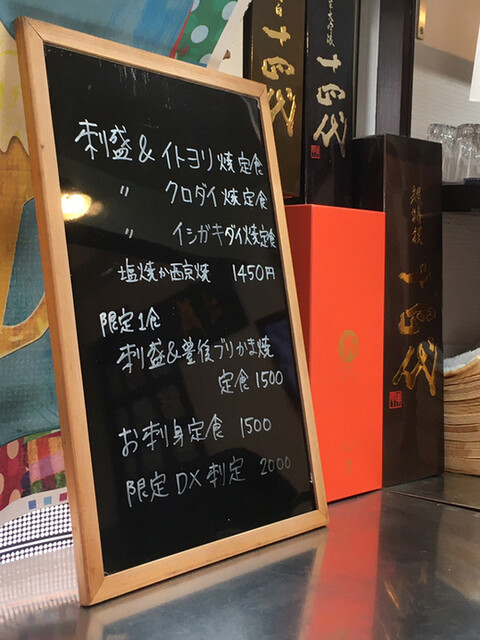 刺盛&イトヨリ焼定食
〃 クロダイ焼定食
〃 イシガキダイ焼定食
塩焼か西京焼 1450円
限定1食
刺盛&豊後ブリかま焼
定食1500
お刺身定食 1500
限定DX刺定 2000
十四代
十四代
十四代